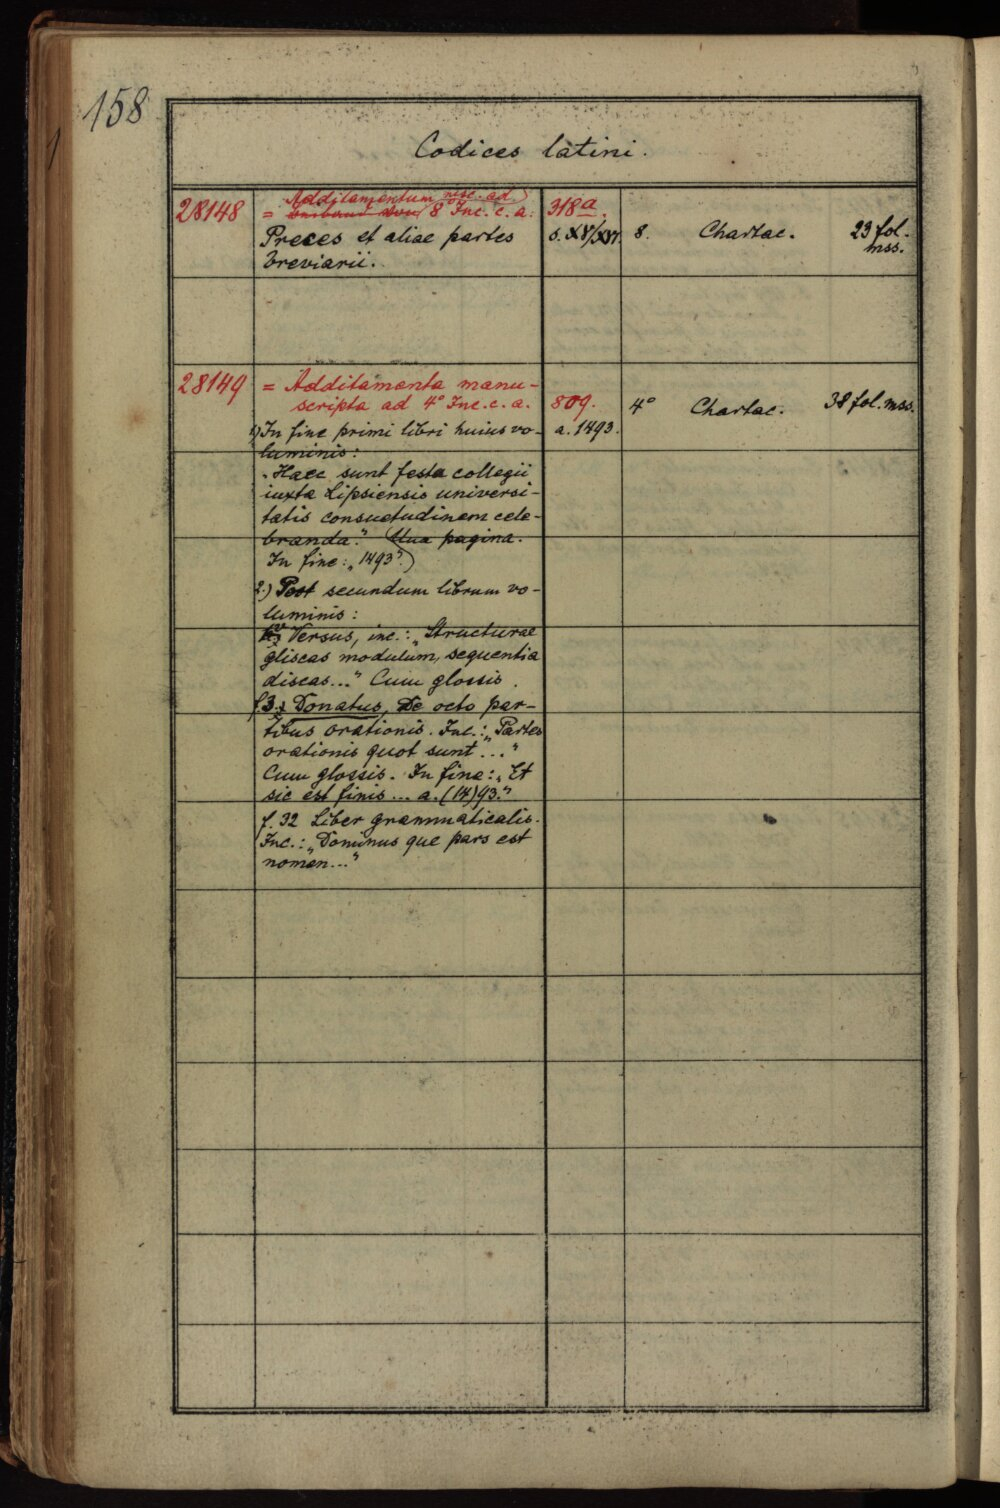 158
Codices latini.
28148 Additamentum msc. ad
= 8° Inc. c. a. 318a.
Preces et aliae partes s. XV/XVI. 8. Chartac. 23 fol.
breviarii. mss.
28149 = Additamenta manu-
scripta ad 4° Inc. c. a. 809. 4° Chartac. 38 fol. mss.
1) In fine primi libri huius vo- a. 1493.
luminis:
„Haec sunt festa collegii
iuxta Lipsiensis universi-
tatis consuetudinem cele-
branda." (Una pagina.
In fine: „1493".)
2.) Post secundum librum vo-
luminis:
Versus, inc.: „Structurae
gliscas modulum, sequentia
discas..." Cum glossis.
f. 3. Donatus, De octo par-
tibus orationis. Inc.: „Partes
orationis quot sunt ..."
Cum glossis. In fine: „Et
sic est finis ... a. (14)93."
f. 32 Liber grammaticalis.
Inc.: „Dominus que pars est
nomen..."